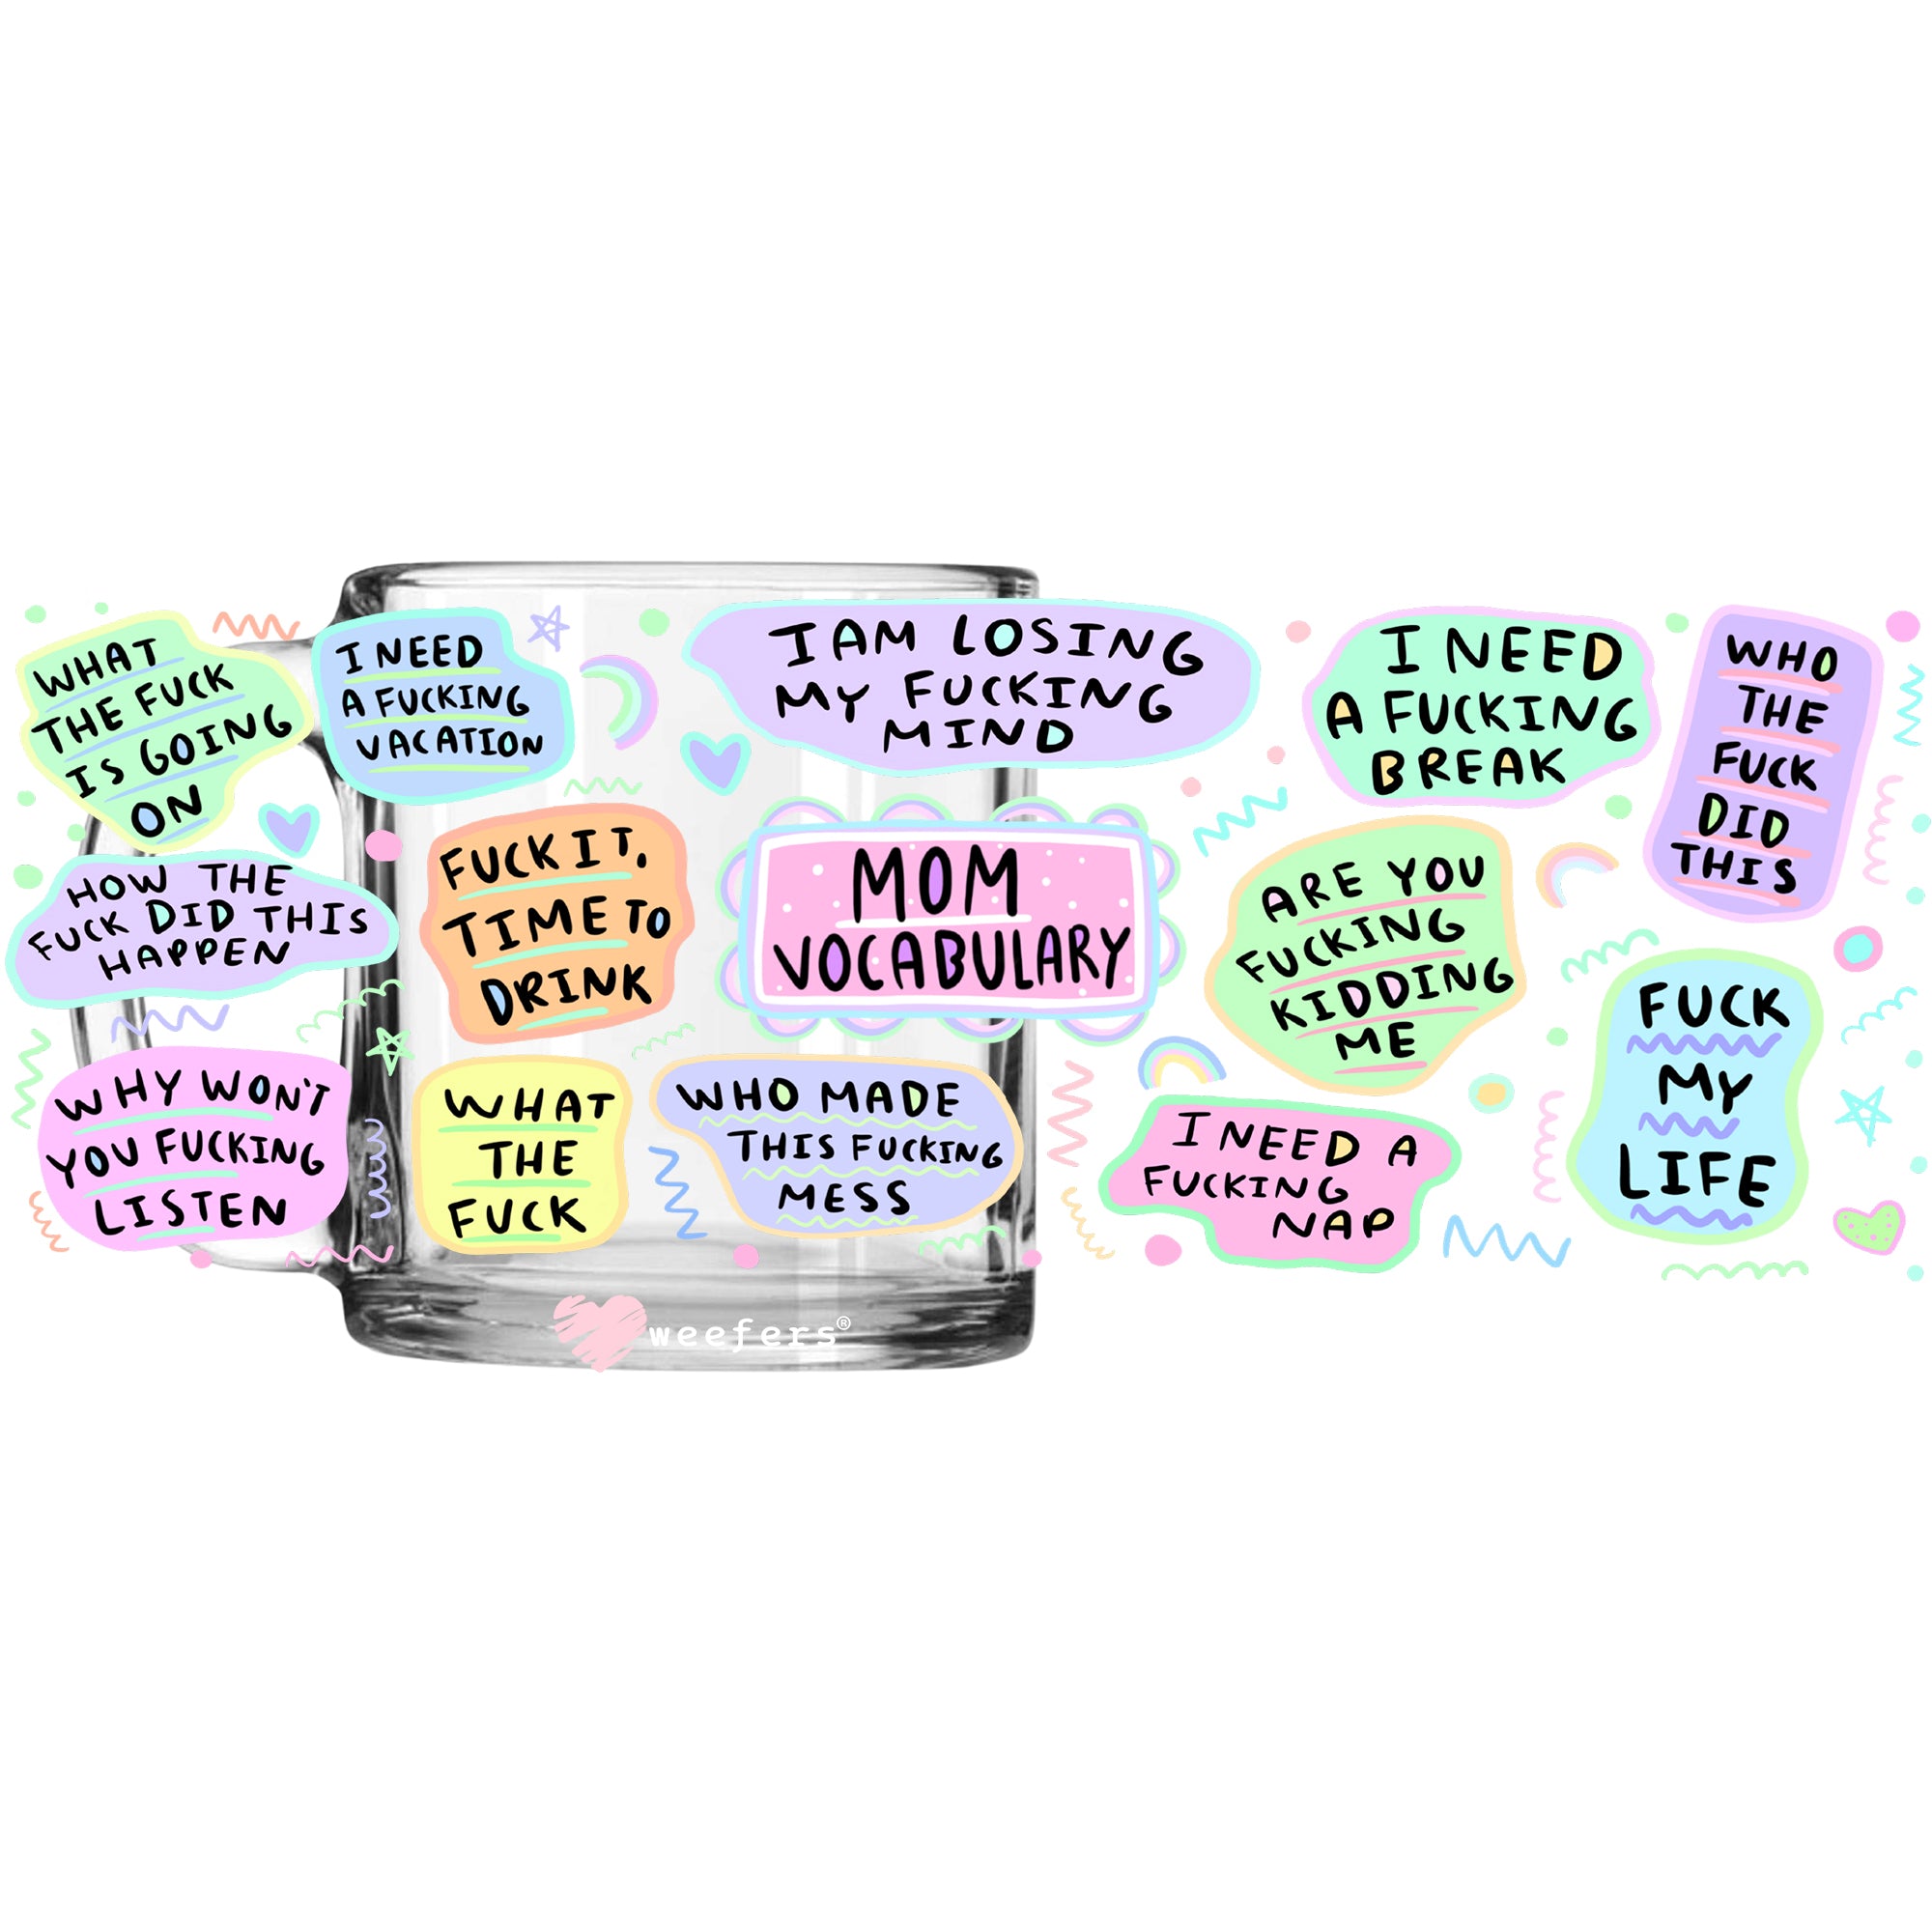 WHAT
THE FUCK
IS GOING
ON
I NEED
A FUCKING
VACATION
I AM LOSING
MY FUCKING
MIND
I NEED
A FUCKING
BREAK
WHO
THE
FUCK
DID
THIS
HOW THE
FUCK DID THIS
HAPPEN
FUCK IT,
TIME TO
DRINK
MOM
VOCABULARY
ARE YOU
FUCKING
KIDDING
ME
FUCK
MY
LIFE
WHY WON'T
YOU FUCKING
LISTEN
WHAT
THE
FUCK
WHO MADE
THIS FUCKING
MESS
I NEED A
FUCKING
NAP
weefers®